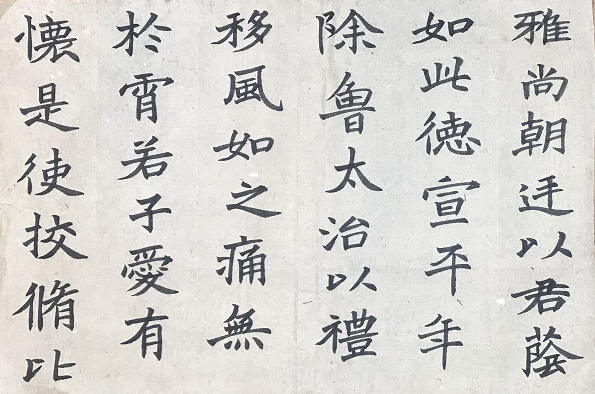 雅尚朝廷以君蔭
如此德宣平年
除魯太治以禮
移風如之痛無
於霄若子愛有
懷是使挍脩比